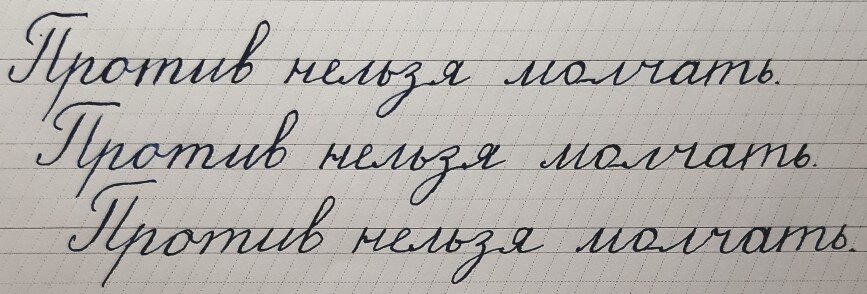 Против нельзя молчать.
Против нельзя молчать.
Против нельзя молчать.